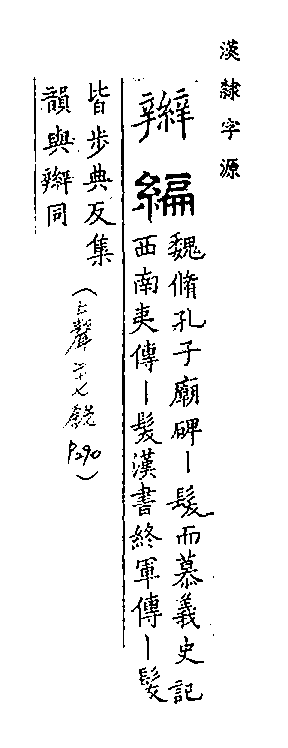 漢隸字源
辮
編
魏脩孔子廟碑ー髮而慕義史記
西南夷傳ー髮漢書終軍傳ー髮
皆步典反集
韻與辮同
(上聲二十七銑
P290)